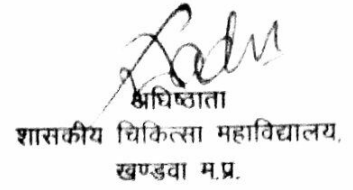 अधिष्ठाता
शासकीय चिकित्सा महाविद्यालय,
खण्डवा म.प्र.